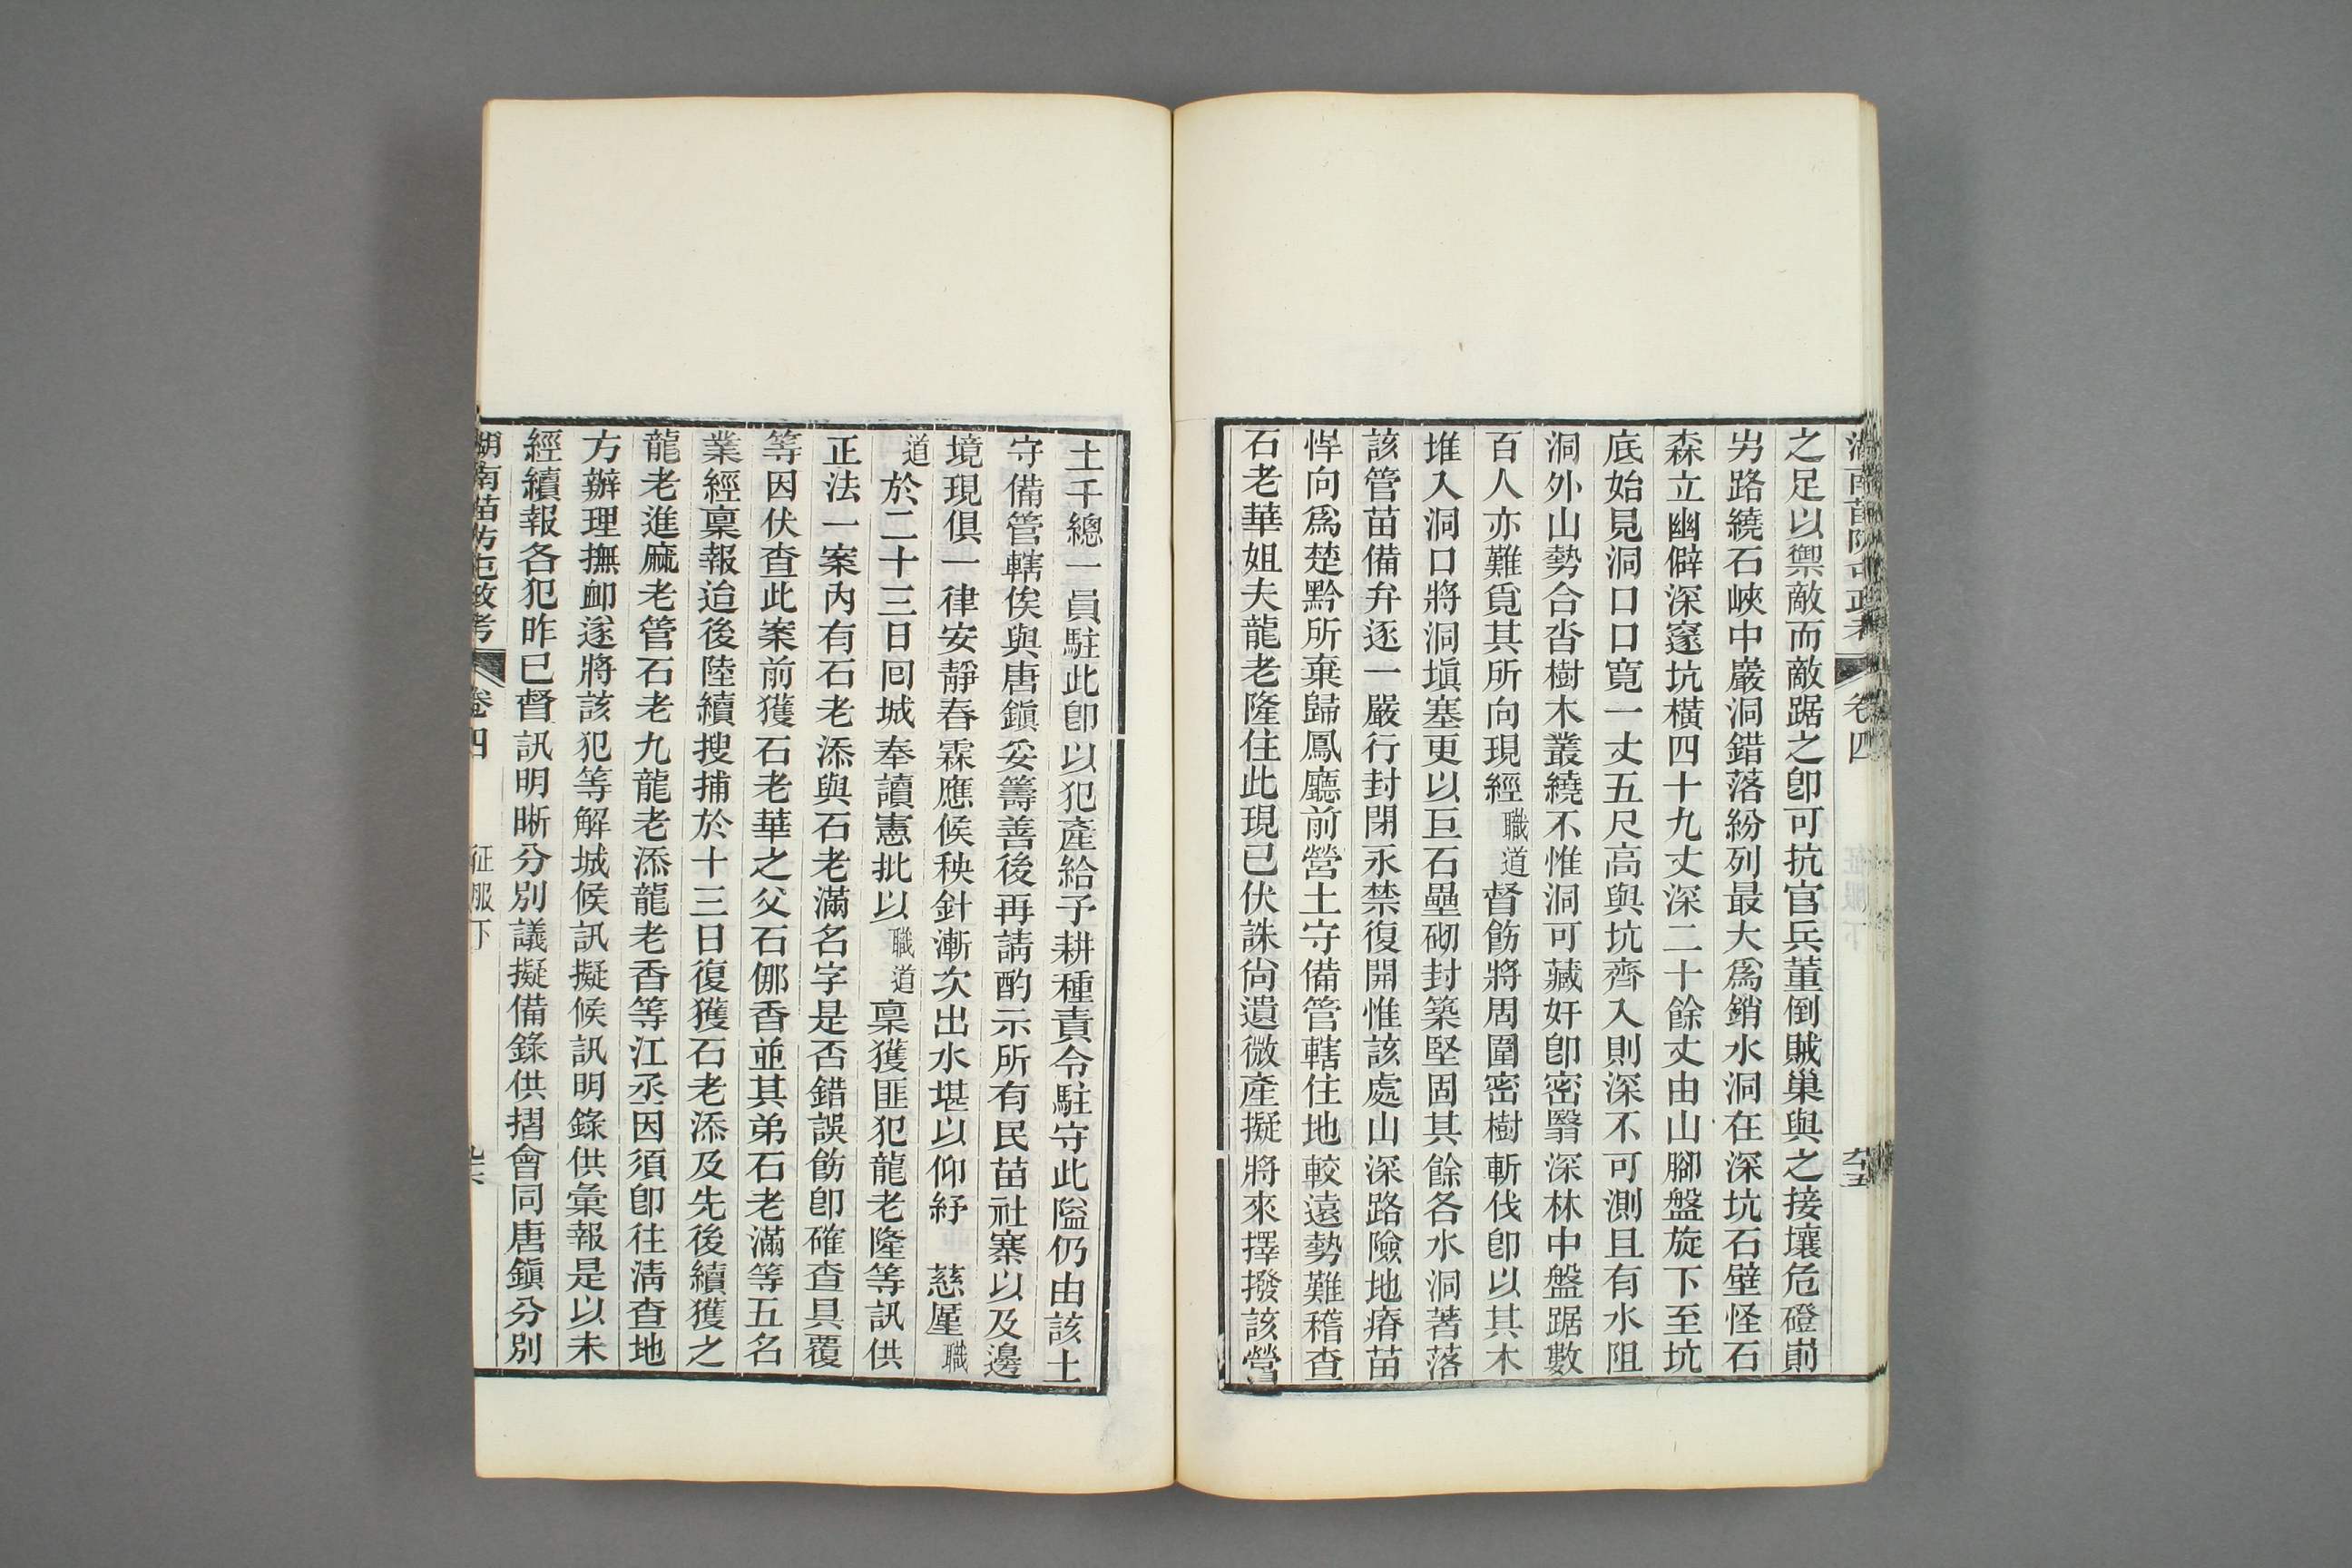 之足以禦敵而敵踞之卽可抗官兵董倒賊巢與之接壤危磴崱
屴路繞石峽中巖洞錯落紛列最大爲銷水洞在深坑石壁怪石
森立幽僻深窱坑橫四十九丈深二十餘丈由山腳盤旋下至坑
底始見洞口口寬一丈五尺高與坑齊入則深不可測且有水阻
洞外山勢合沓樹木叢繞不惟洞可藏奸卽密翳深林中盤踞數
百人亦難覓其所向現經職道督飭將周圍密樹斬伐卽以其木
堆入洞口將洞塡塞更以巨石壘砌封築堅固其餘各水洞著落
該管苗備弁逐一嚴行封閉永禁復開惟該處山深路險地瘠苗
悍向爲楚黔所棄歸鳳廳前營土守備管轄住地較遠勢難稽查
石老華姐夫龍老隆住此現已伏誅尙遺微產擬將來擇撥該營
土千總一員駐此卽以犯產給予耕種責令駐守此隘仍由該土
守備管轄俟與唐鎭妥籌善後再請酌示所有民苗社寨以及邊
境現俱一律安靜春霖應候秧針漸次出水堪以仰紓 慈廑職
道於二十三日回城奉讀憲批以職道稟獲匪犯龍老隆等訊供
正法一案內有石老添與石老滿名字是否錯誤飭卽確查具覆
等因伏查此案前獲石老華之父石㑚香並其弟石老滿等五名
業經稟報迨後陸續搜捕於十三日復獲石老添及先後續獲之
龍老進麻老管石老九龍老添龍老香等江丞因須卽往淸查地
方辦理撫卹遂將該犯等解城候訊擬候訊明錄供彙報是以未
經續報各犯昨已督訊明晰分別議擬備錄供摺會同唐鎭分別
湖南苗防屯政考 卷四 征服下